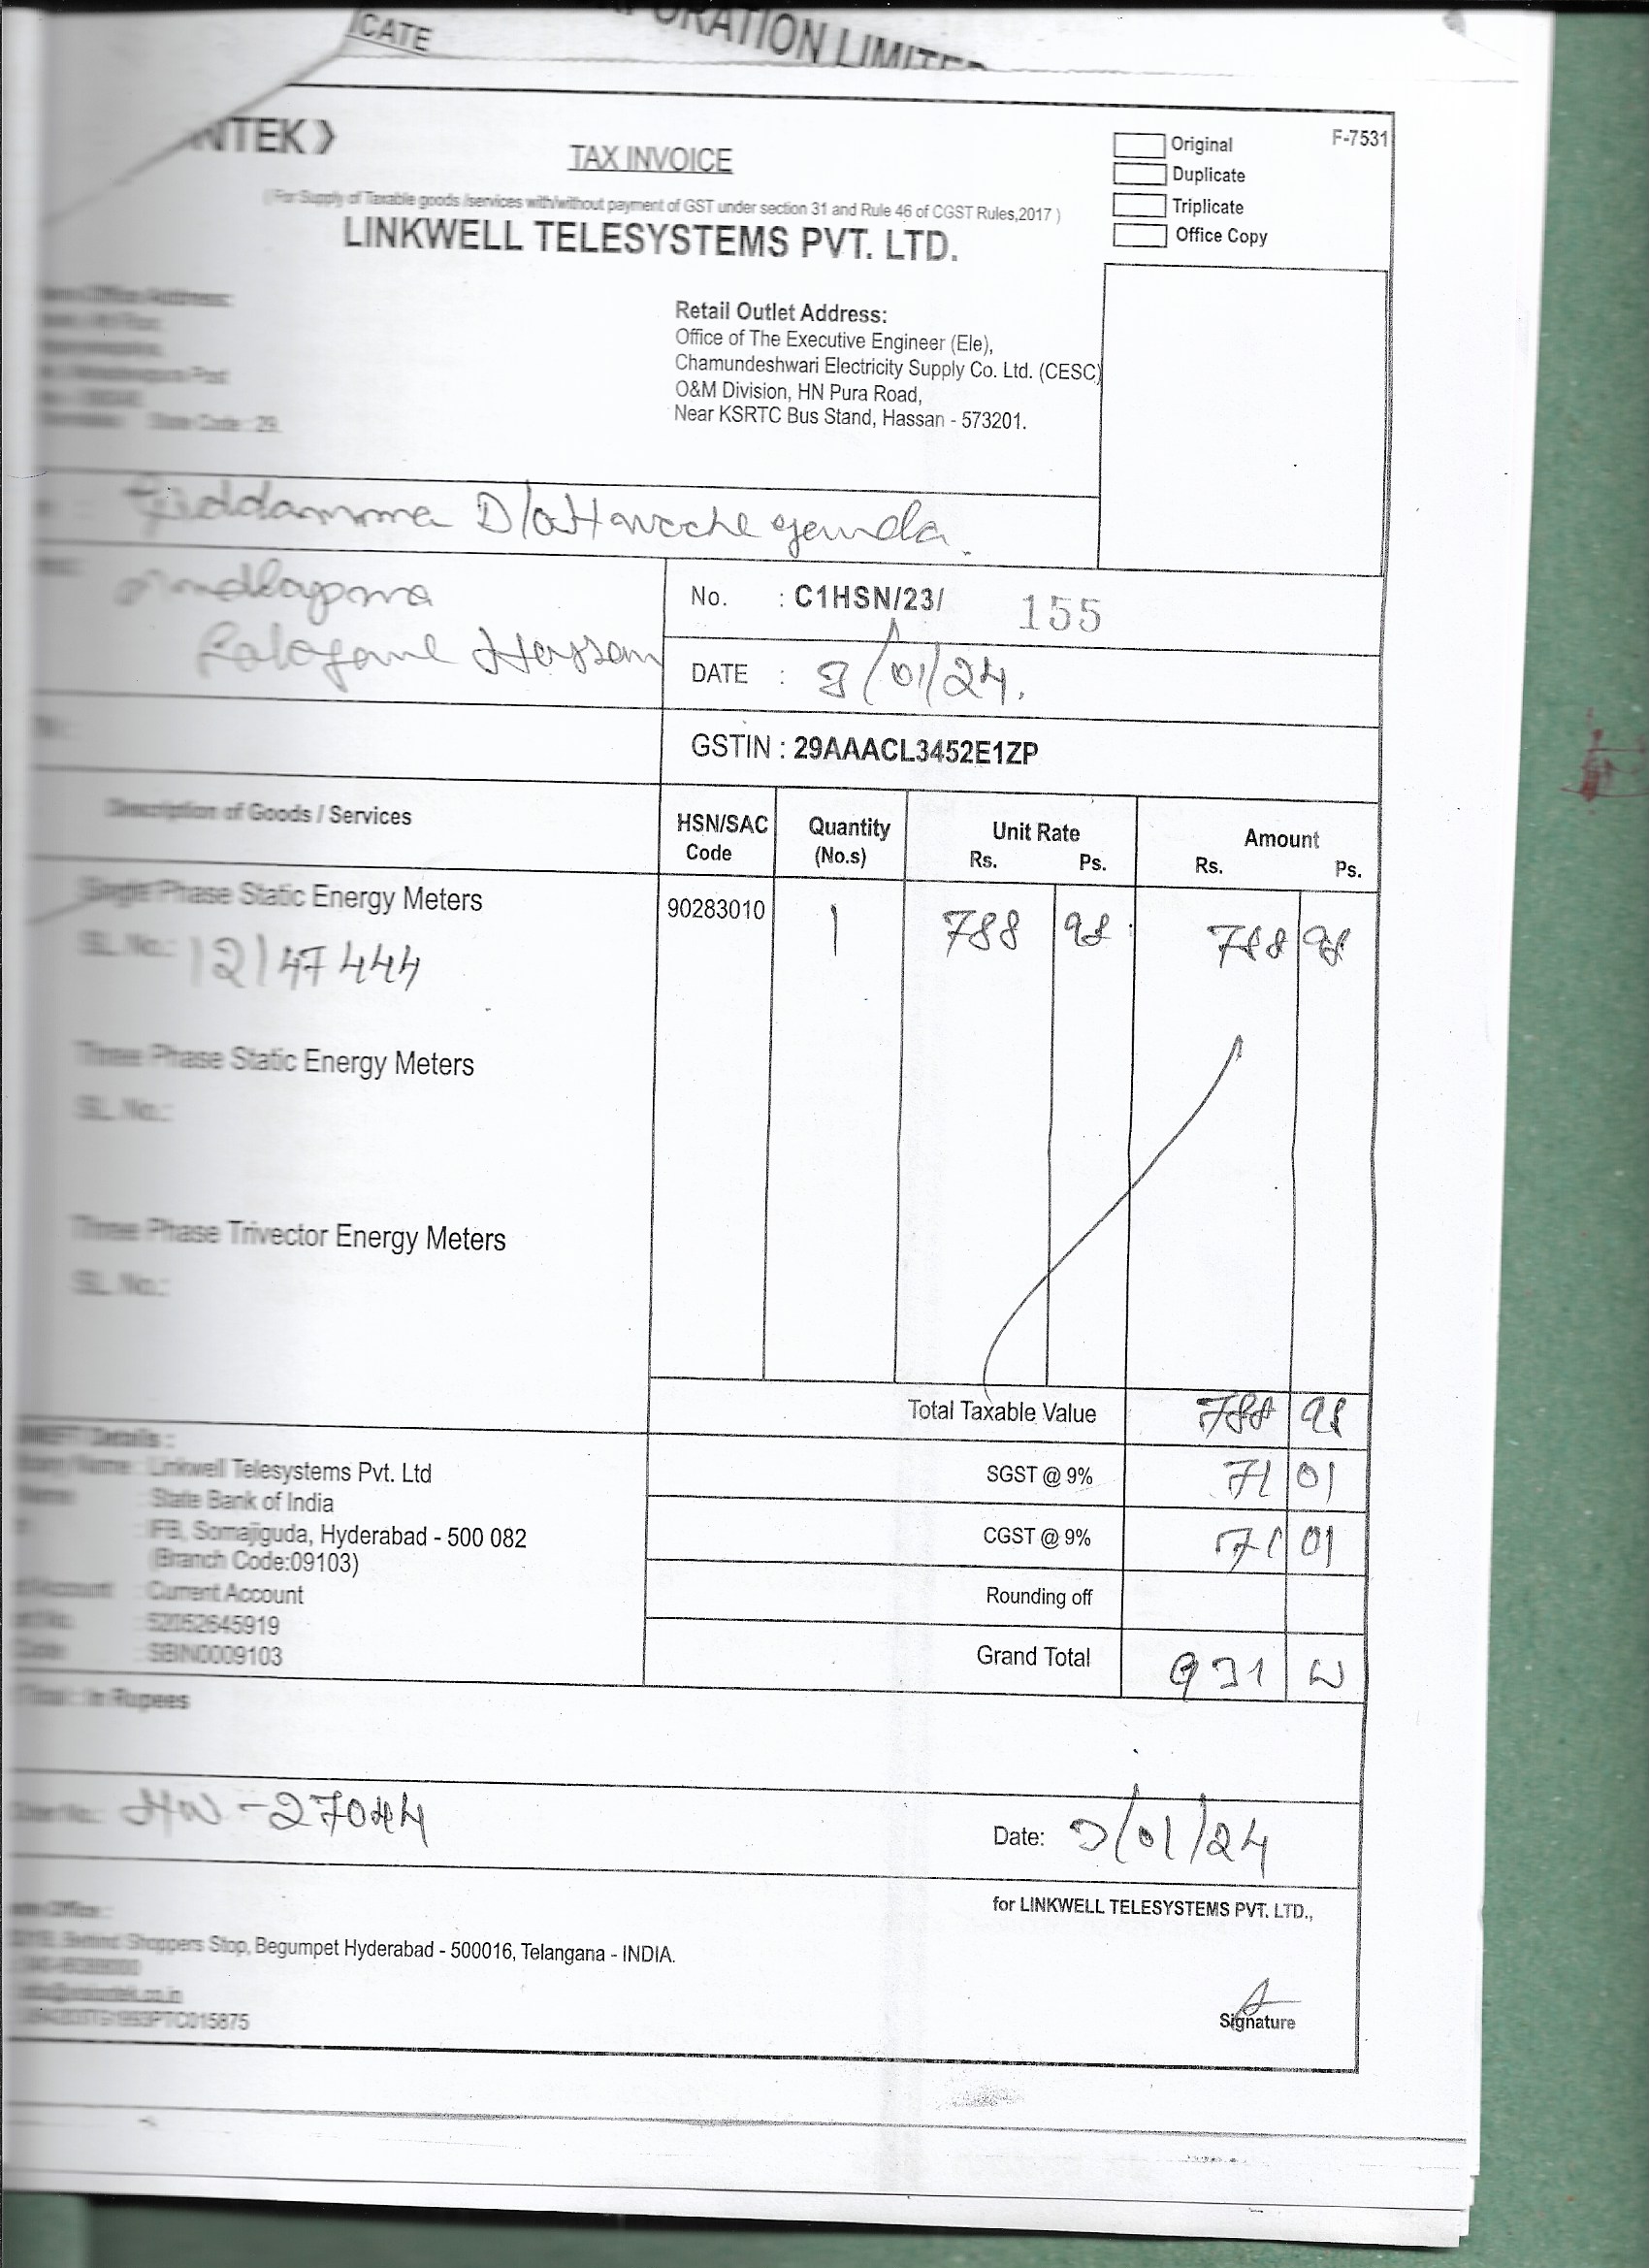 ICATE
ORATION LIMITE
NTEK
F-7531
TAX INVOICE
Original
Duplicate
Triplicate
Office Copy
(For Supply of Taxable goods /services with/without payment of GST under section 31 and Rule 46 of CGST Rules,2017 )
LINKWELL TELESYSTEMS PVT. LTD.
Office Address:
State Code : 29.
Retail Outlet Address:
Office of The Executive Engineer (Ele),
Chamundeshwari Electricity Supply Co. Ltd. (CESC)
O&M Division, HN Pura Road,
Near KSRTC Bus Stand, Hassan - 573201.
D/o
No. : C1HSN/23/ 155
Hassan
DATE : /01/24.
GSTIN : 29AAACL3452E1ZP
Description of Goods / Services HSN/SAC Code Quantity (No.s) Unit Rate Rs. Ps. Amount Rs. Ps.
Single Phase Static Energy Meters 90283010 1 788 98 788 98
SL. No.: 12147444
Three Phase Static Energy Meters
SL. No.:
Three Phase Trivector Energy Meters
SL. No.:
Total Taxable Value 788 98
SGST @ 9% 71 01
CGST @ 9% 71 01
Rounding off
Grand Total 931 00
Details :
Name : Linkwell Telesystems Pvt. Ltd
Name : State Bank of India
: IFB, Somajiguda, Hyderabad - 500 082
(Branch Code:09103)
Account : Current Account
: 52052645919
: SBIN0009103
Total : In Rupees
No.: HN - 27044
Date: /01/24
for LINKWELL TELESYSTEMS PVT. LTD.,
Office :
Behind Shoppers Stop, Begumpet Hyderabad - 500016, Telangana - INDIA.
Signature